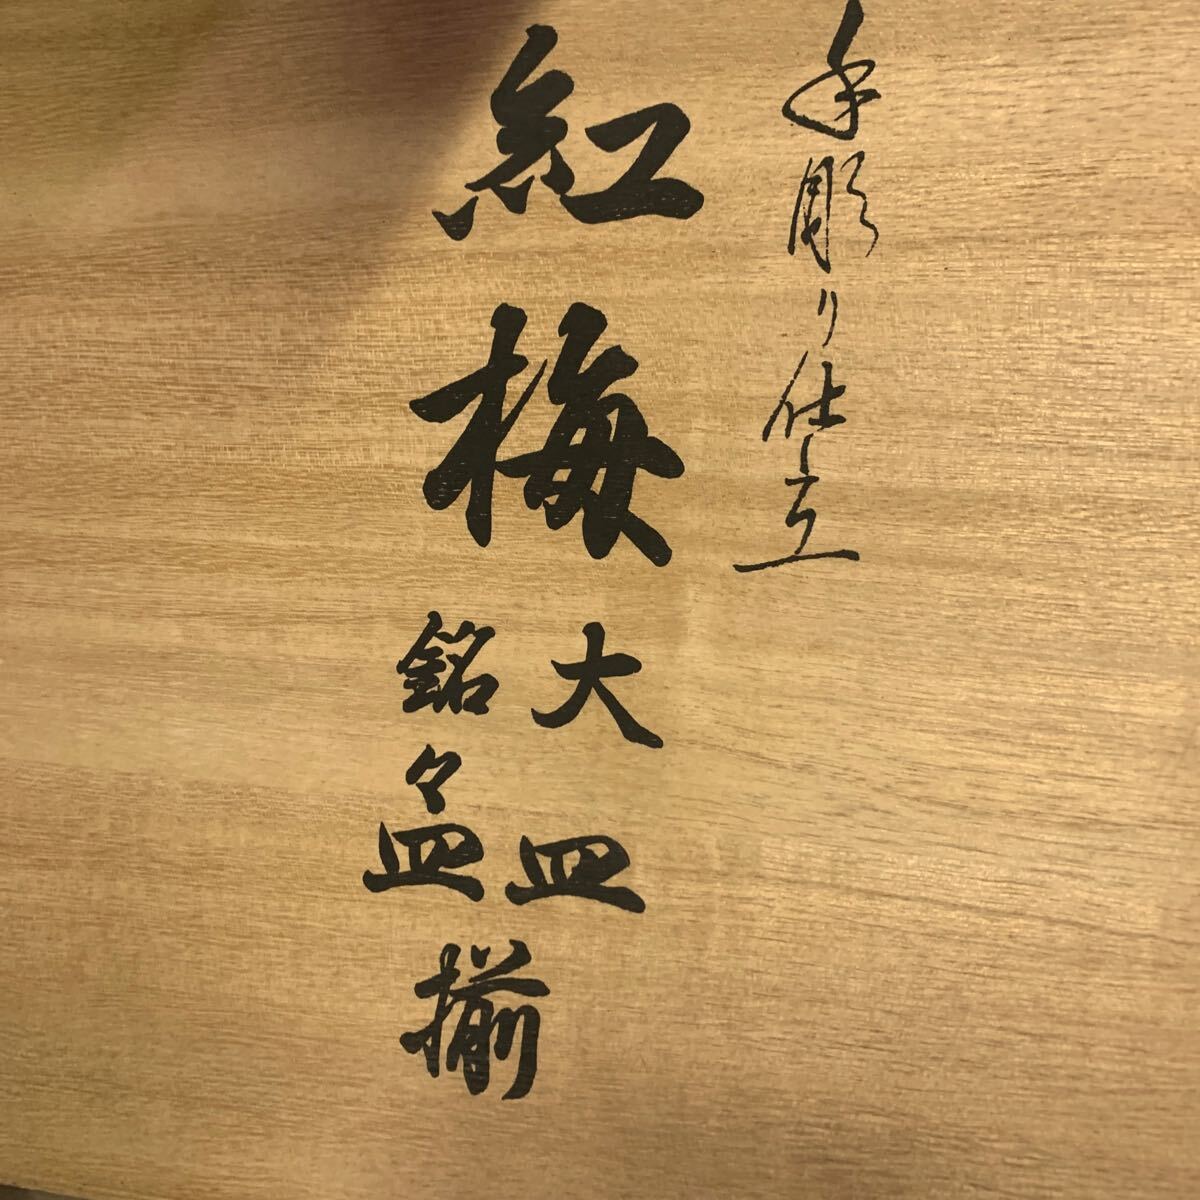 手彫り仕立
紅梅
大皿
銘々皿
揃